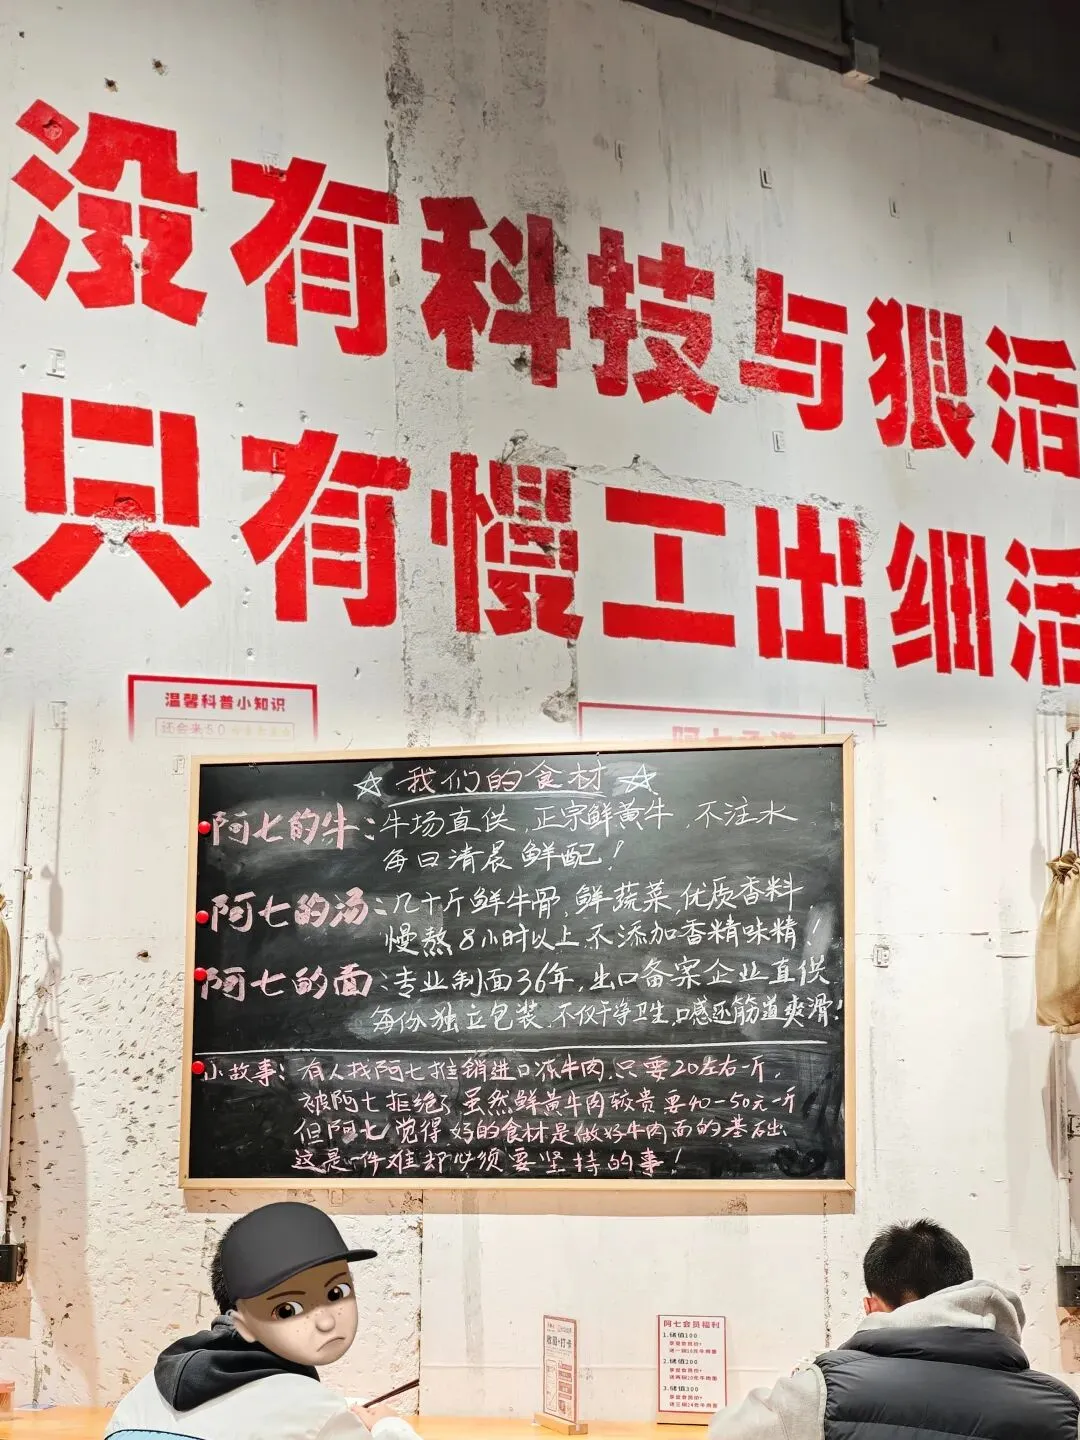 没有科技与狠活
只有慢工出细活
温馨科普小知识
还会来50
阿七承诺
我们的食材
阿七的牛：牛场直供，正宗鲜黄牛，不注水
每日清晨鲜配！
阿七的汤：几十斤鲜牛骨，鲜蔬菜，优质香料
慢熬8小时以上，不添加香精味精！
阿七的面：专业制面36年，出口备案企业直供
每份独立包装，不仅干净卫生，口感还筋道爽滑！
小故事：有人找阿七推销进口冻牛肉，只要20左右一斤，
被阿七拒绝了，虽然鲜黄牛肉较贵要40-50元一斤
但阿七觉得好的食材是做好牛肉面的基础、
这是一件难却必须要坚持的事！
收藏+打卡
阿七会员福利
1.储值100
享受会员价+
2.储值200
享受会员价+
3.储值300
享受会员价+